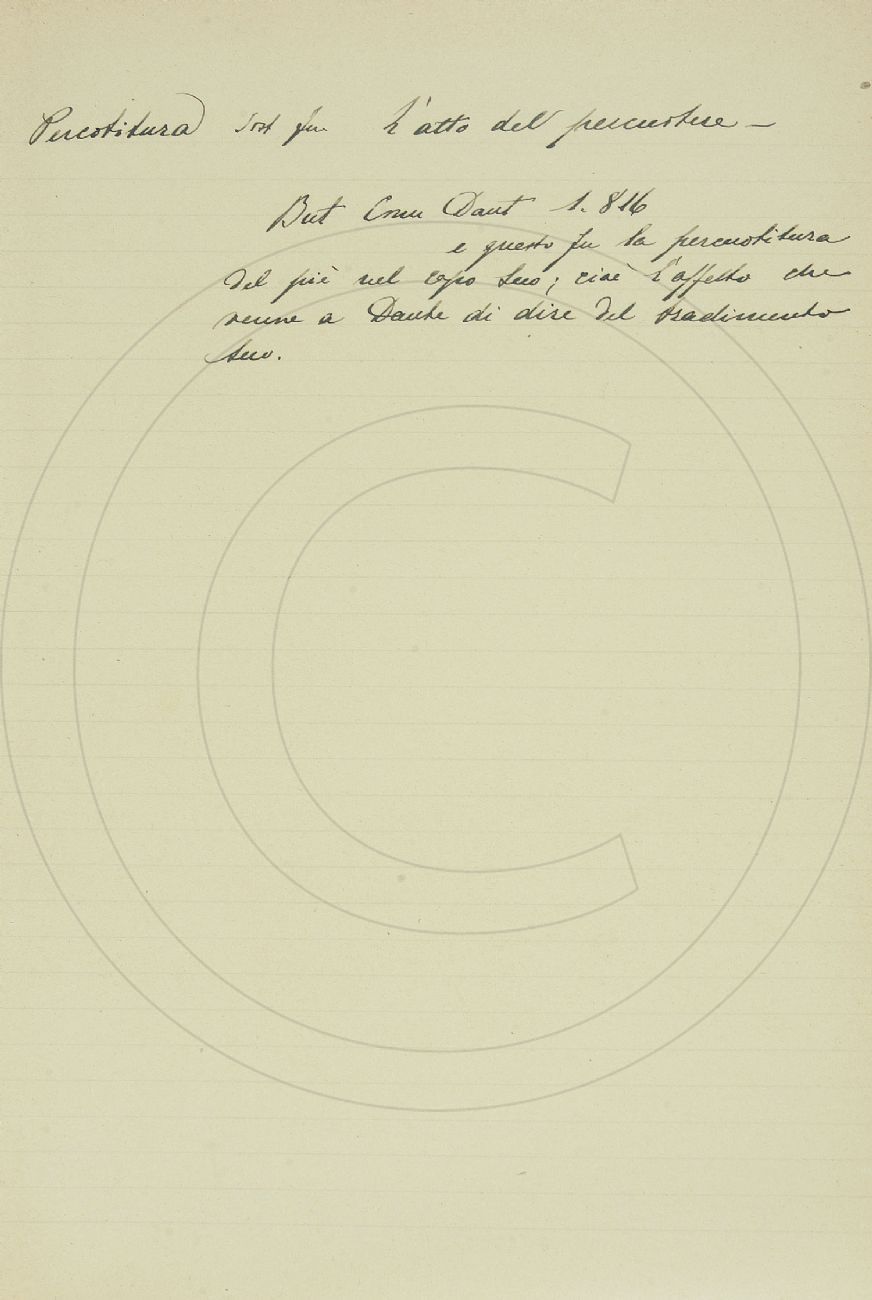 Percotitura Sost fem. L'atto del percuotere —
But Com Dant 1. 816
e questo fu la percuotitura
del piè nel capo suo; cioè l'affetto che
venne a Dante di dire del tradimento
suo.